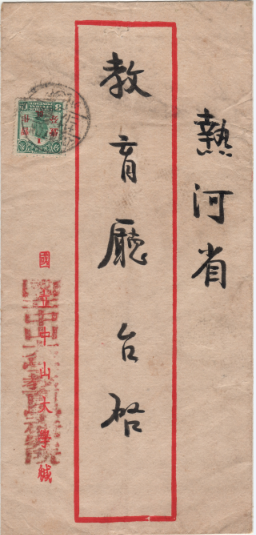 熱河省
教育廳台啓
國立中山大學緘